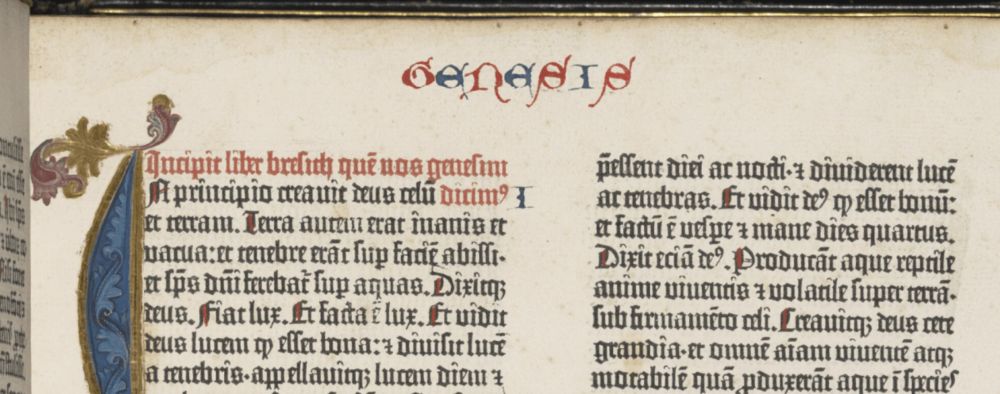 GENESIS
Incipit liber bresith quē nos genesim
N principio creavit deus celū dicimꝰ I
et terram. Terra autem erat inanis et
vacua: et tenebre erāt sup faciē abissi·
et sp̄s dn̄i ferebat̄ sup aquas. Dixitqꝫ
deus. Fiat lux. Et facta ē lux. Et vidit
deus lucem ꝙ esset bona: ⁊ divisit lucē
a tenebris·appellavitqꝫ lucem diem ⁊
p̄essent diei ac nocti·⁊ dividerent lucē
ac tenebras. Et vidit deꝰ ꝙ esset bonū:
et factū ē vespe ⁊ mane dies quartus.
Dixit eciā deꝰ. Producāt aque reptile
anime viventis ⁊ volatile super terrā·
sub firmamēto celi. Creavitqꝫ deus cete
grandia·et omnē aīam viventē atqꝫ
motabilē quā ꝓduxerāt aque ī species